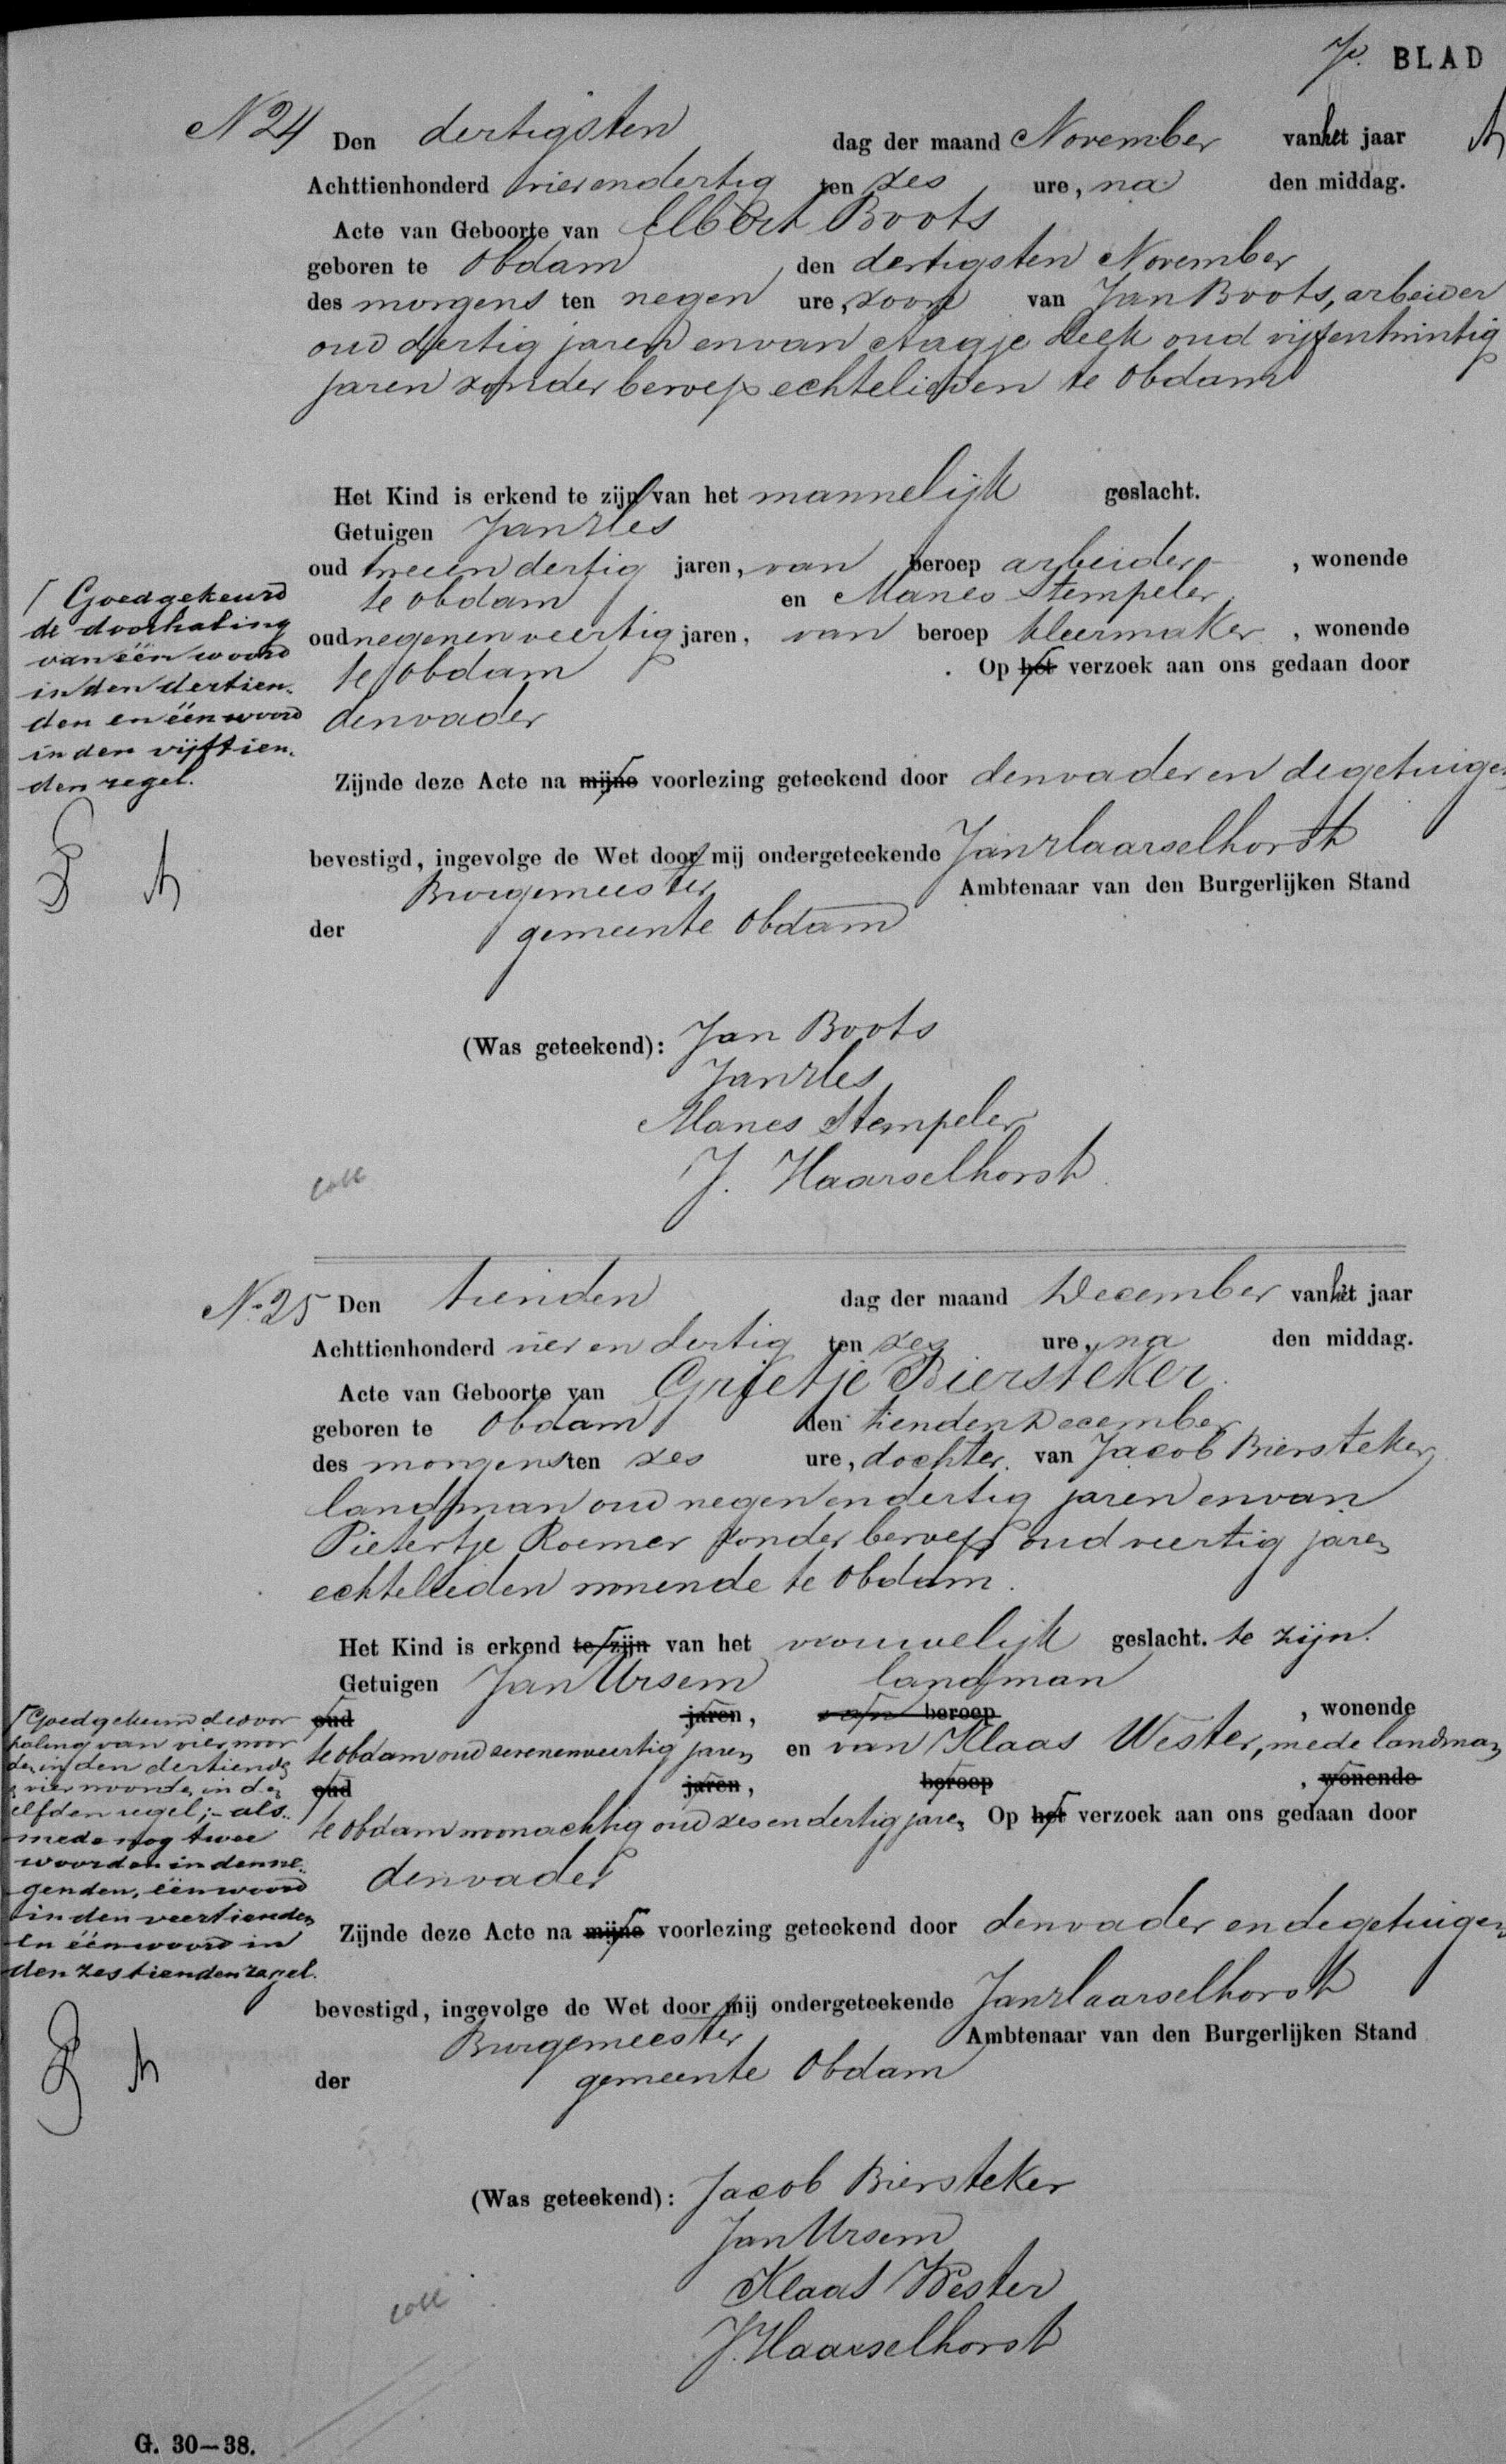 7e. BLAD
N 24 Den dertigsten dag der maand November van het jaar
Achttienhonderd vierendertig ten zes ure, na den middag.
Acte van Geboorte van Elbert Boots
geboren te Obdam den dertigsten November
des morgens ten negen ure, zoon van Jan Boots, arbeider
oud dertig jaren en van Aagje Leek oud vijfentwintig
jaren zonder beroep echtelieden te Obdam
Het Kind is erkend te zijn van het mannelijk geslacht.
Getuigen Jan Hes
oud tweeendertig jaren, van beroep arbeider, wonende
te Obdam en Manes Stempeler
oud negenenveertig jaren, van beroep kleermaker, wonende
te Obdam. Op het verzoek aan ons gedaan door
den vader
Zijnde deze Acte na mijne voorlezing geteekend door den vader en de getuigen
bevestigd, ingevolge de Wet door mij ondergeteekende Jan Haarselhorst
Burgemeester Ambtenaar van den Burgerlijken Stand
der gemeente Obdam
Goedgekeurd
de doorhaling
van één woord
in den dertien-
den en één woord
in den vijftien-
den regel.
(Was geteekend): Jan Boots
Jan Hes
Manes Stempeler
J. Haarselhorst
coll
N. 25 Den tienden dag der maand December van het jaar
Achttienhonderd vier en dertig ten zes ure, na den middag.
Acte van Geboorte van Grietje Biersteker.
geboren te Obdam den tienden December
des morgens ten zes ure, dochter van Jacob Biersteker
landman oud negen en dertig jaren en van
Pietertje Roemer zonder beroep oud veertig jaren
echtelieden wonende te Obdam.
Het Kind is erkend te zijn van het vrouwelijk geslacht. te zijn.
Getuigen Jan Ursem landman
oud jaren, van beroep, wonende
te Obdam oud zevenenveertig jaren en van Klaas Wester, mede landman
oud jaren, beroep, wonende
te Obdam woonachtig oud zes en dertig jaren Op het verzoek aan ons gedaan door
den vader
Zijnde deze Acte na mijne voorlezing geteekend door den vader en de getuigen
bevestigd, ingevolge de Wet door mij ondergeteekende Jan Haarselhorst
Burgemeester Ambtenaar van den Burgerlijken Stand
der gemeente Obdam
Goedgekeurd de door
haling van vier woor
den in den dertienden
vier woorden in den
elfden regel; - als-
mede nog twee
woorden in den ne-
genden, één woord
in den veertienden
en één woord in
den zestienden regel.
(Was geteekend): Jacob Biersteker
Jan Ursem
Klaas Wester
J. Haarselhorst
coll
G. 30—38.